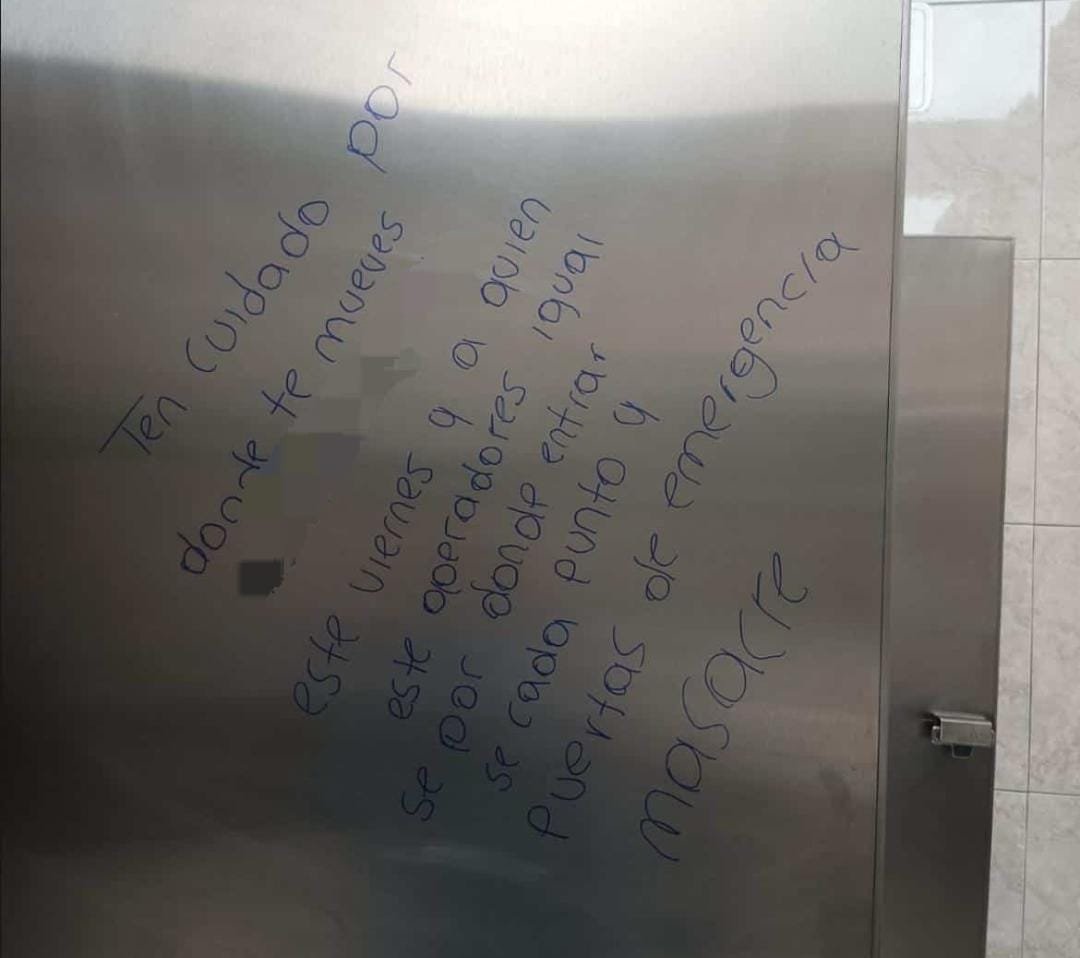 Ten cuidado por
donde te mueves
este viernes y a quien
este operadores igual
se por donde entrar
se cada punto y
puertas de emergencia
masacre